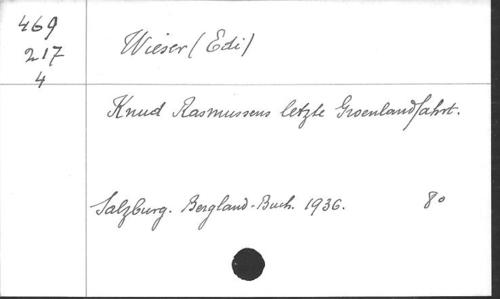 469
217
4
Wieser (Edi)
Knud Rasmussens letzte Groenlandfahrt.
Salzburg. Bergland-Buch. 1936. 8o